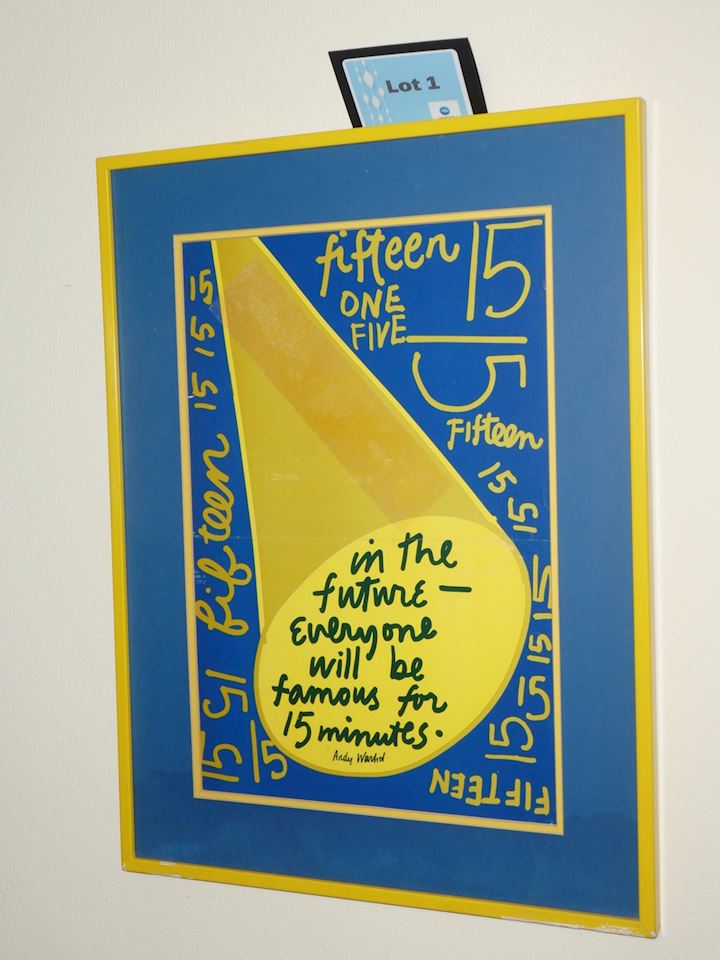 Lot 1
fifteen 15
ONE
FIVE
15
Fifteen
15
15
15
15
15
15
15
15
15
fifteen
15
15
15
in the
future —
Everyone
will be
famous for
15 minutes.
Andy Warhol
FIFTEEN